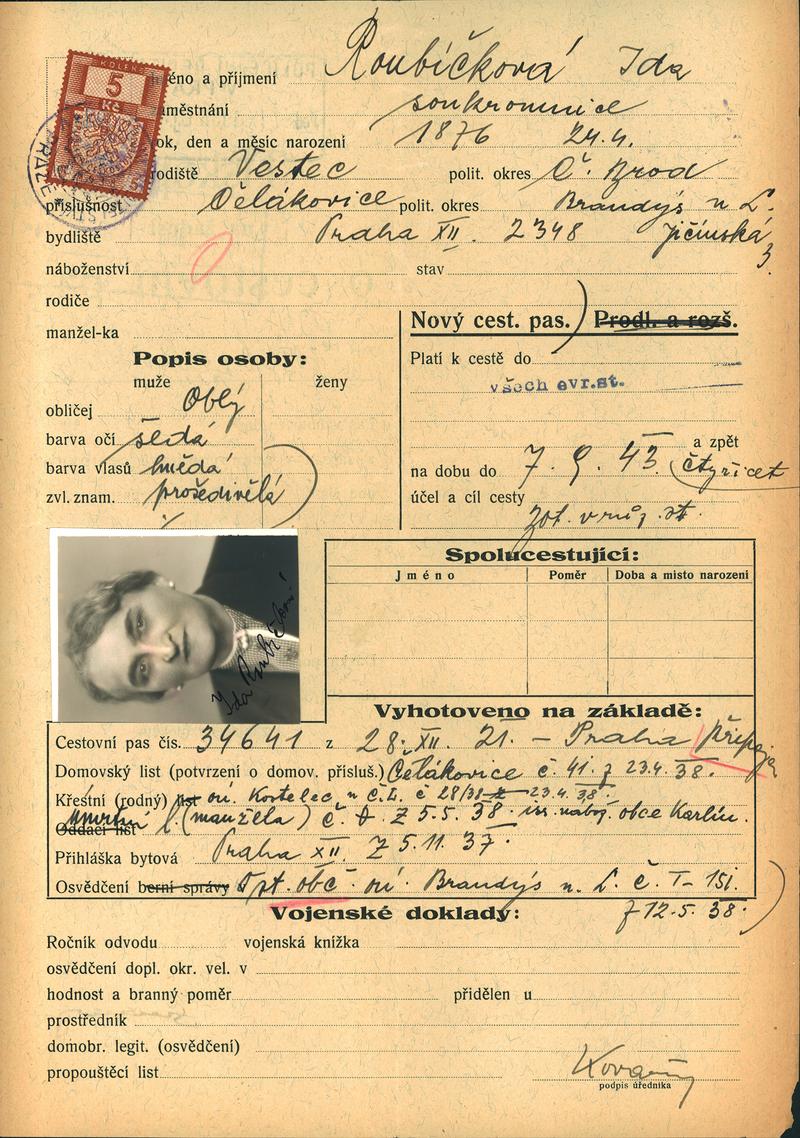 KOLEK
5
Kč
jméno a příjmení Roubíčková Ida
zaměstnání soukromnice
rok, den a měsíc narození 1876 24.4.
rodiště Vestec polit. okres Č. Brod
příslušnost Čelákovice polit. okres Brandýs n L.
bydliště Praha XII. 2348 Jičínská
3
náboženství stav
rodiče
manžel-ka
Nový cest. pas.) Prodl. a rozš.
Popis osoby:
muže ženy
obličej Oblý
barva očí šedá
barva vlasů hnědá
zvl. znam. prošedivělá
Platí k cestě do
všech evr.st.
a zpět
na dobu do 7. 9. 43 (čtyřicet
účel a cíl cesty
zot. v růz. st.
Ida Roubíčková
Spolucestující:
Jméno Poměr Doba a misto narození
Vyhotoveno na základě:
Cestovní pas čís. 34641 z 28. XII. 21. – Praha
Domovský list (potvrzení o domov. přísluš.) Čelákovice č. 41. z 23.4.38.
Křestní (rodný) list oú. Kostelec n Č.L. č 28/38 23.4.38.
Oddací list Úmrtní l. (manžela) č. Z 5.5.38. isr. nábož. obce Karlín.
Přihláška bytová Praha XII. Z 5.11.37.
Osvědčení berní správy opt. obč. oú. Brandýs n. L. č. T-151.
z 12.5.38.
Vojenské doklady:
Ročník odvodu vojenská knížka
osvědčení dopl. okr. vel. v
hodnost a branný poměr přidělen u
prostředník
domobr. legit. (osvědčení)
propouštěcí list
podpis úředníka